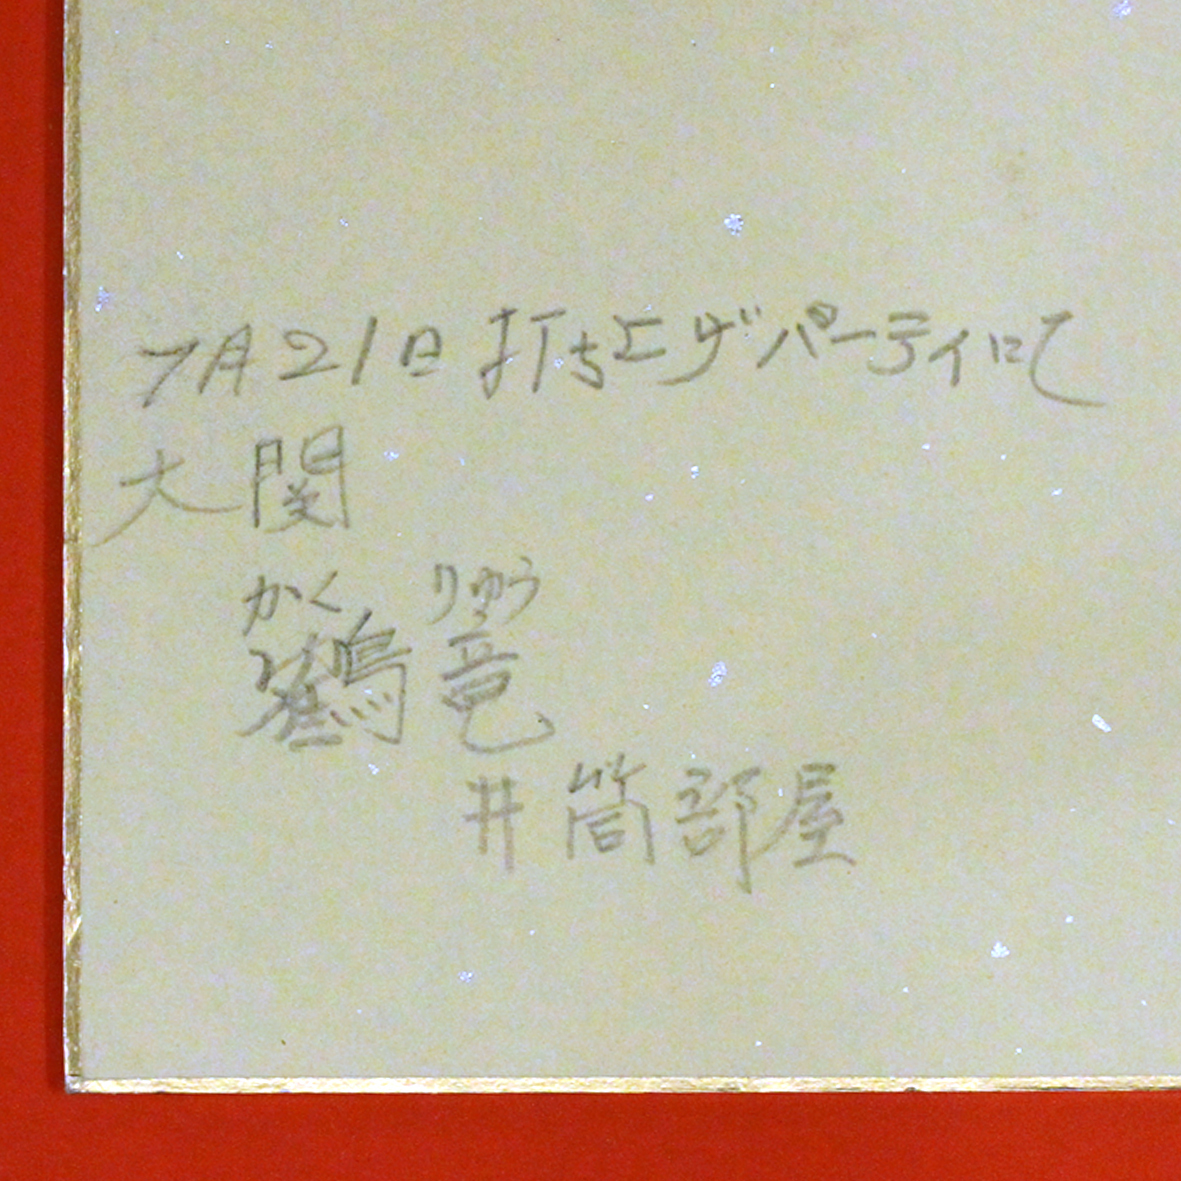 7月21日 打ち上げパーティにて
大関
かく りゅう
鶴竜
井筒部屋